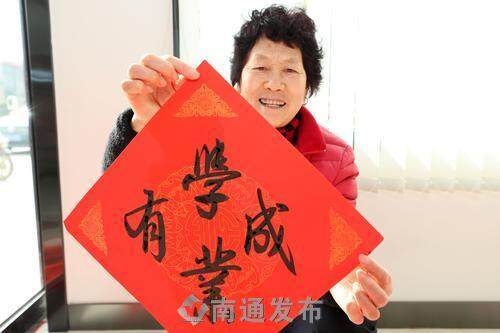 學業有成
南通发布